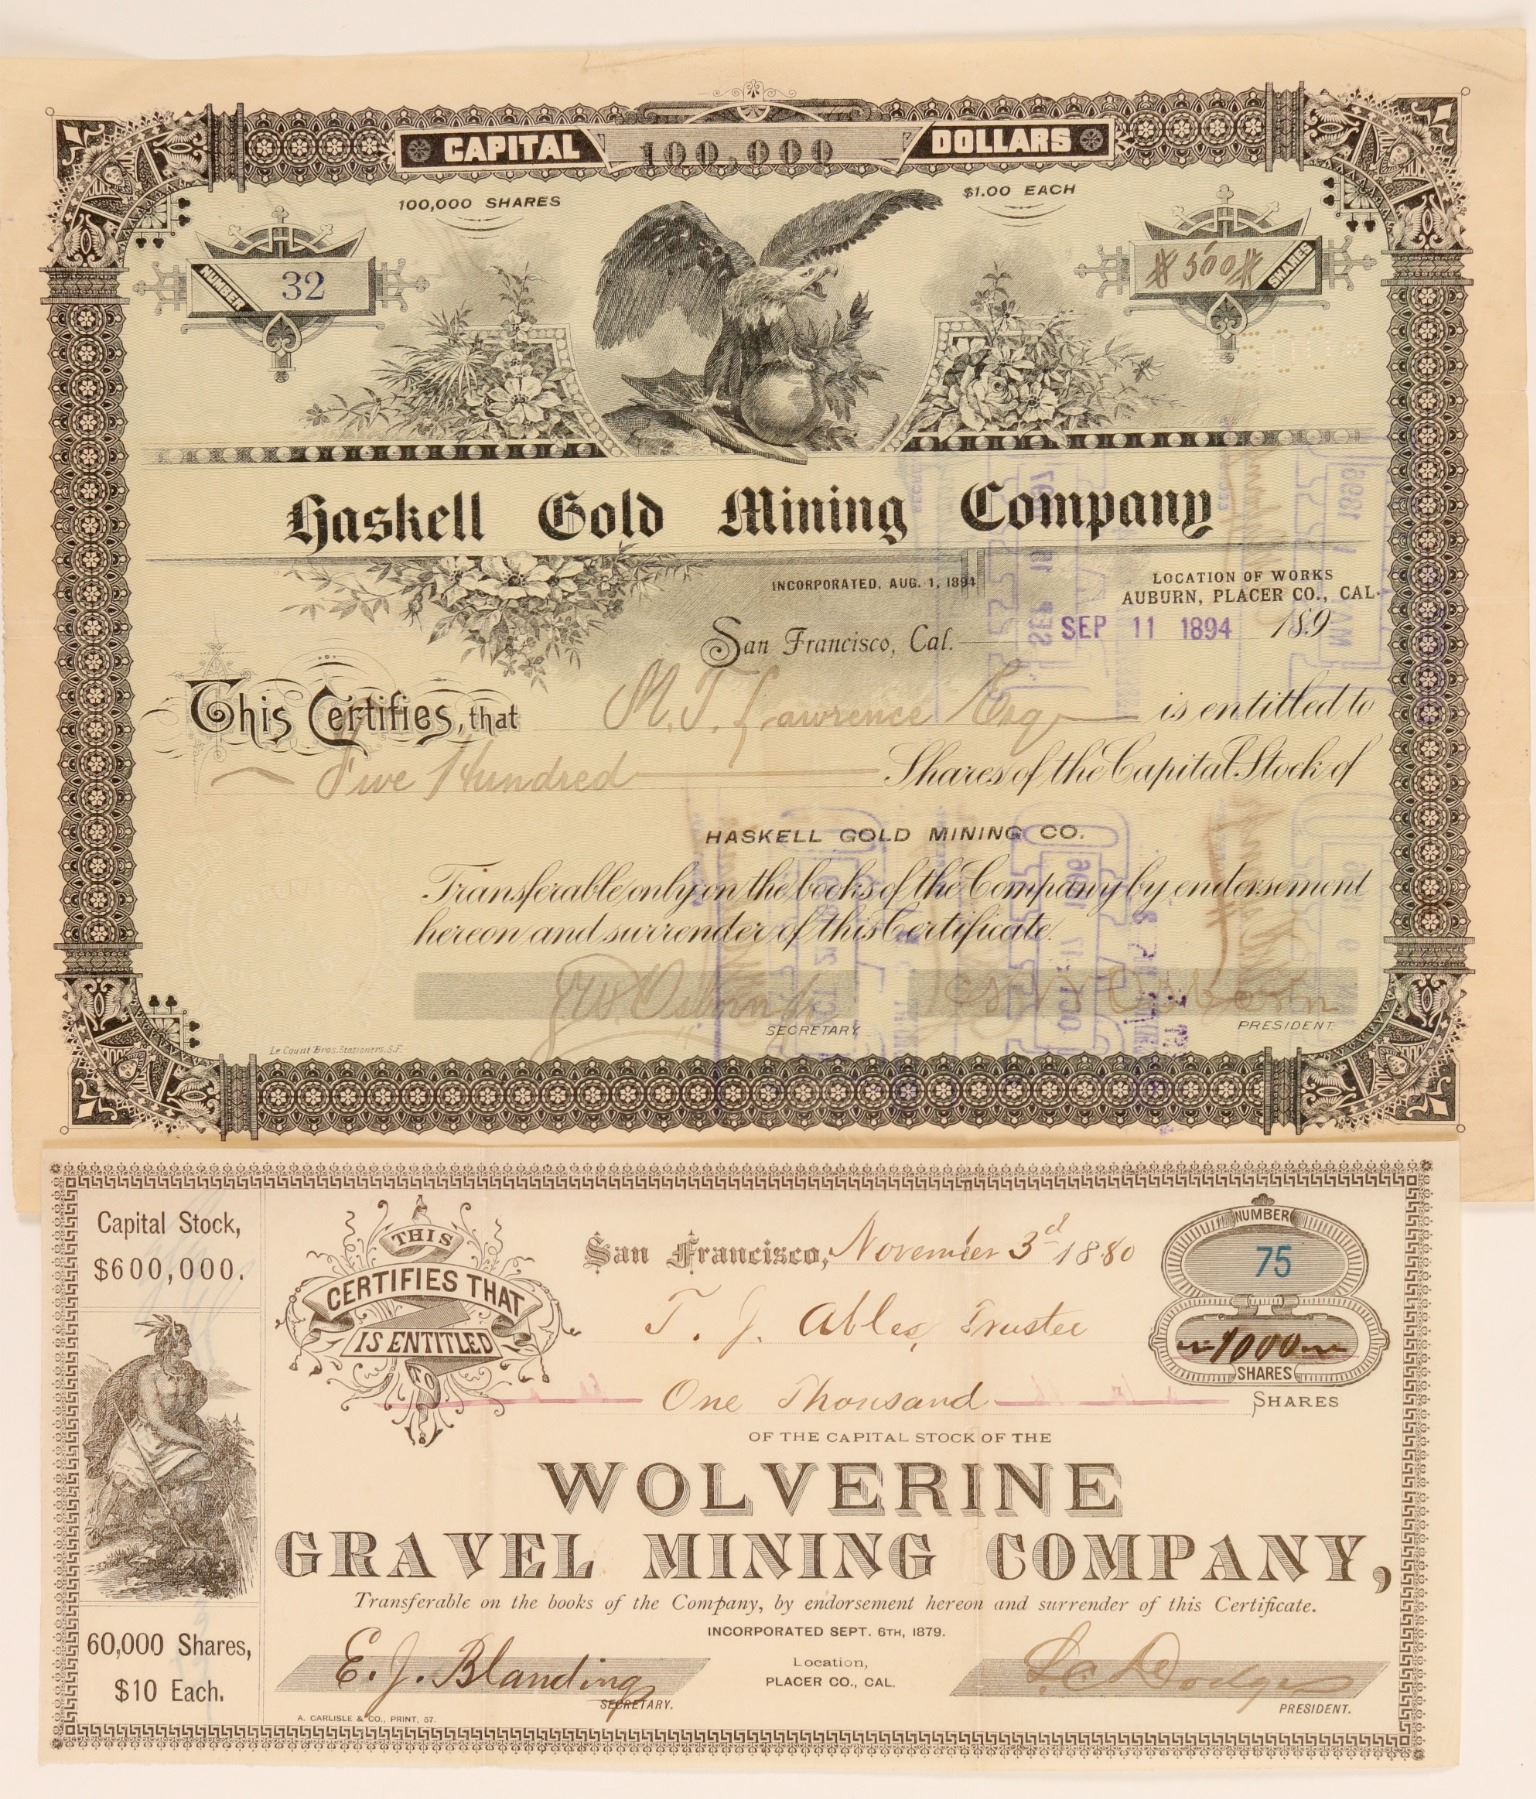 CAPITAL 100,000 DOLLARS
100,000 SHARES
$1.00 EACH
NUMBER 32
500 SHARES
Haskell Gold Mining Company
INCORPORATED, AUG. 1, 1894
LOCATION OF WORKS
AUBURN, PLACER CO., CAL.
San Francisco, Cal. SEP 11 1894 189
This Certifies, that M. T. Lawrence Esq is entitled to
Five Hundred Shares of the Capital Stock of
HASKELL GOLD MINING CO.
Transferable only on the books of the Company by endorsement
hereon and surrender of this Certificate.
Osborn
SECRETARY
Osborn
PRESIDENT
Le Count Bros. Stationers, S.F.
Capital Stock,
$600,000.
60,000 Shares,
$10 Each.
THIS
CERTIFIES THAT
IS ENTITLED
TO
San Francisco, November 3d 1880
NUMBER
75
T. J. Ables, Trustee
1000
SHARES
One Thousand SHARES
OF THE CAPITAL STOCK OF THE
WOLVERINE
GRAVEL MINING COMPANY,
Transferable on the books of the Company, by endorsement hereon and surrender of this Certificate.
INCORPORATED SEPT. 6TH, 1879.
E. J. Blanding
SECRETARY.
Location,
PLACER CO., CAL.
Dodge
PRESIDENT.
A. CARLISLE & CO., PRINT, S7.